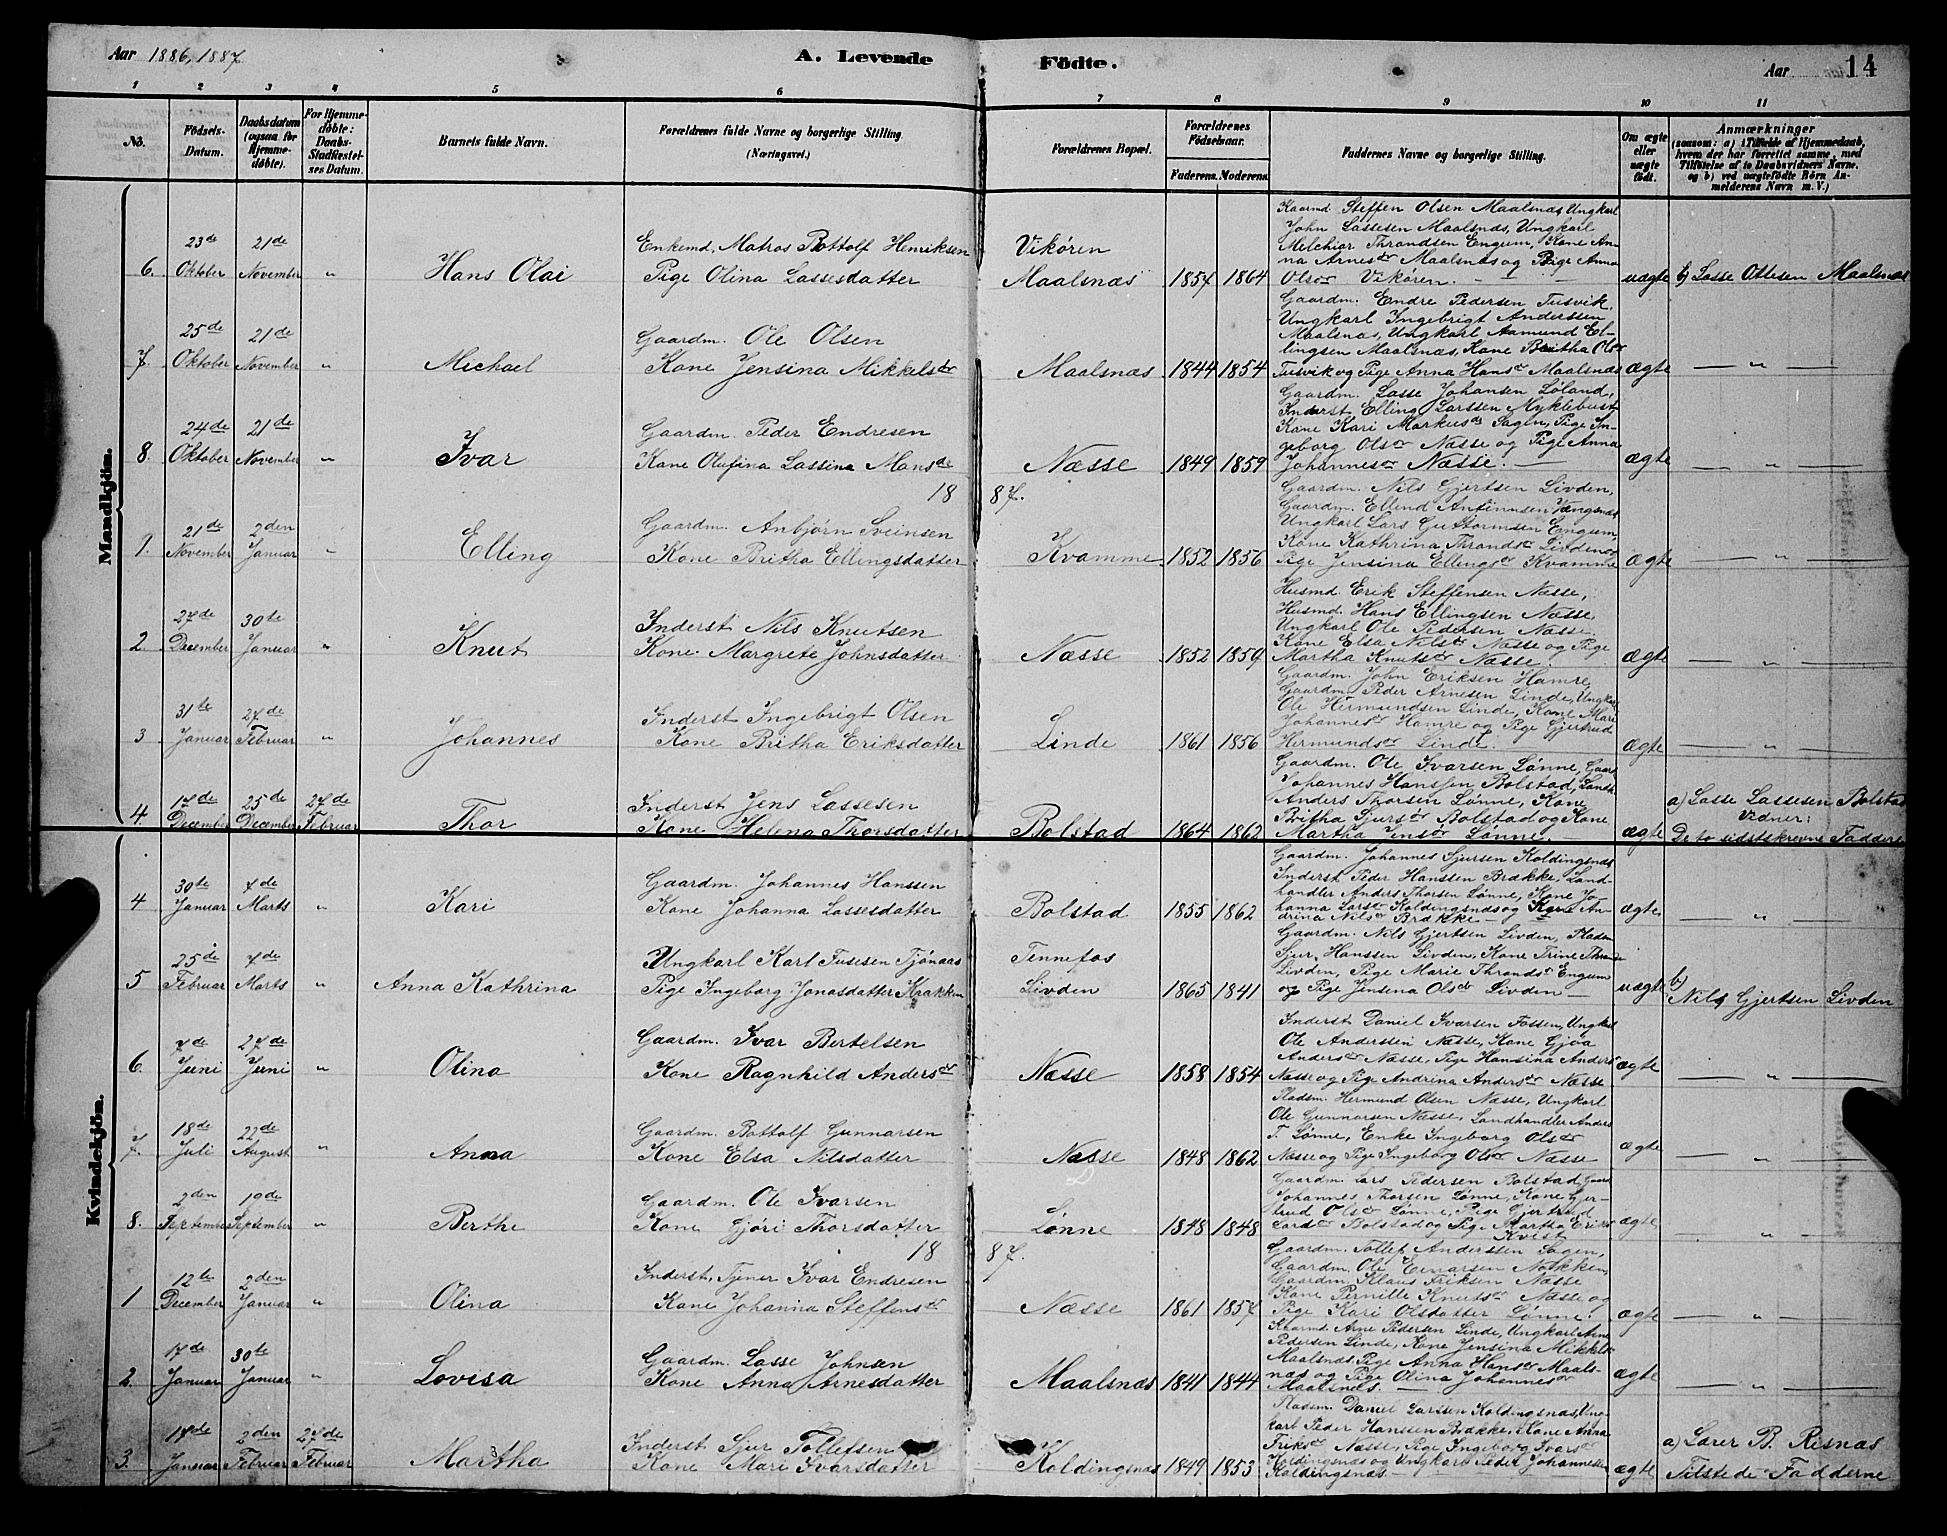 Aar 1886, 1887
A. Levende Födte.
Aar 14
1 2 3 4 5 6 7 8 9 10 11
No.
Födsels-Datum.
Daabsdatum (ogsaa for Hjemmedöbte).
For Hjemmedöbte: Daabs-Stadfæstelses Datum.
Barnets fulde Navn.
Forældrenes fulde Navne og borgerlige Stilling (Næringsvei.)
Forældrenes Bopæl.
Forældrenes Födselsaar.
Faderens. Moderens.
Faddernes Navne og borgerlige Stilling.
Om ægte eller uægte födt.
Anmærkninger
(saasom: a) i Tilfælde af Hjemmedaab, hvem der har forrettet samme, med Tilföielse af to Daabsvidners Navne. og b) ved uægtefödte Börn Anmelderens Navn m. V.)
Mandkjön.
6. 23de Oktober 21de November " Hans Olai
Enkemd. Matros Bottolf Henriksen
Pige Olina Lassesdatter
Vikøren
Maalsnæs 1854 1864
Kaarmd. Steffen Olsen Maalsnæs, Ungkarl
John Lassesen Maalsnæs, Ungkarl
Melchior Thrandsen Engum, Kone An-
na Arnesdr Maalsnæs og Pige Anna
Olsdr Vikøren.
uægte b) Lasse Ottesen Maalsnæs
7. 25de Oktober 21de November " Michael
Gaardm. Ole Olsen
Kone Jensina Mikkelsdr
Maalsnæs 1844 1854
Gaardm. Endre Pedersen Tusvik,
Ungkarl Ingebrigt Anderssen
Maalsnæs, Ungkarl Aamund El-
lingsen Maalsnæs, Kone Britha Olsdr
Tusvik og Pige Anna Hansdr Maalsnæs
ægte — " —
8. 24de Oktober 21de November " Ivar
Gaardm. Peder Endresen
Kone Olufina Lassina Monsdr
Næsse 1849 1859
Gaardm. Lasse Johansen Løland,
Inderst Elling Larssen Myklebust
Kone Kari Markusdr Sagen, Pige In-
geborg Olsdr Næsse og Pige Anna
Johannesdr Næsse.
ægte — " —
1887.
1. 21de November 2den Januar " Elling
Gaardm. Anbjørn Sveinsen
Kone Britha Ellingsdatter
Kvamme 1852 1856
Gaardm. Nils Gjertsen Livden,
Gaardm. Ellend Antinnsen Vængsnæs
Ungkarl Lars Guttormsen Engum,
Kone Kathrina Thrandsdr Livden og
Pige Jensina Ellingsdr Kvamme
ægte — " —
2. 27de December 30te Januar " Knut
Inderst Nils Knutsen
Kone Margrete Johnsdatter
Næsse 1852 1859
Husmd. Erik Steffensen Næsse,
Husmd. Hans Ellingsen Næsse
Ungkarl Ole Pedersen Næsse
Kone Elsa Nilsdr Næsse og Pige
Martha Knutsdr Næsse.
ægte — " —
3 31te Januar 27de Februar " Johannes
Inderst Ingebrigt Olsen
Kone Britha Eriksdatter
Linde 1861 1856
Gaardm. John Eriksen Hamre,
Gaardm. Peder Arnesen Linde, Ungkarl
Ole Hermundsen Linde, Kone Mari
Johannesdr Hamre og Pige Gjertrud
Hermundsdr Linde.
ægte — " —
4. 17de December 25de December 27de Februar Thor
Inderst Jens Lassesen
Kone Helena Thorsdatter
Bolstad 1864 1862
Gaardm. Ole Ivarsen Lønne, Gaard
Johannes Hanssen Bolstad, Landh
Anders Thorsen Lønne, Kone
Britha Sjursdr Bolstad og Kone
Martha Jensdr Lønne
ægte
a) Lasse Lassesen Bolstad
Vidner:
De to sidstskrevne Faddere
Kvindekjön.
4 30te Januar 7de Marts " Kari
Gaardm. Johannes Hanssen
Kone Johanna Lassesdatter
Bolstad 1855 1862
Gaardm. Johannes Sjursen Koldingsnæs
Inderst Peder Hanssen Brække, Land-
handler Anders Thorsen Lønne, Kone Jo-
hanna Larsdr Koldingsnæs og Kone An-
drina Nilsdr Brække
ægte — " —
5 25de Februar 7de Marts " Anna Kathrina
Ungkarl Karl Fusesen Tjønaas
Pige Ingeborg Jonasdatter Krakken
Tennefos
Livden 1865 1841
Gaardm. Nils Gjertsen Livden, Pladsm
Sjur Hanssen Livden, Kone Trine Thrandsdr
Livden, Pige Marie Thrandsdr Engum
og Pige Jensena Olsdr Livden
uægte b) Nils Gjertsen Livden
6. 7de Juni 27de Juni " Olina
Gaardm. Ivar Bertelsen
Kone Ragnhild Andersdr
Næsse 1858 1854
Inderst Daniel Ivarsen Fossen, Ungkarl
Ole Anderssen Næsse, Kone Gjøa
Andersdr Næsse, Pige Hansina Andersdr
Næsse og Pige Andrina Andersdr Næsse
ægte — " —
7. 18de Juli 22de August " Anna
Gaardm. Bottolf Gunnarsen
Kone Elsa Nilsdatter
Næsse 1848 1862
Pladsm. Hermund Olsen Næsse, Ungkarl
Ole Gunnarsen Næsse, Landhandler Anders
T. Lønne, Enke Ingeborg Olsdr
Næsse og Pige Ingeborg Olsdr Næsse
ægte — " —
8. 2den September 19de September " Berthe
Gaardm. Ole Ivarsen
Kone Gjöri Thorsdatter
Lønne 1848 1848
Gaardm. Lars Pedersen Bolstad, Gaard
Johannes Thorsen Lønne, Kone Gjer-
trud Olsdr Lønne, Pige Gjertrud
Larsdr Bolstad og Pige Martha Eriksdr
Kvist
ægte — " —
1887.
1 12te December 2den Januar " Olina
Inderst, Tjener Ivar Endresen
Kone Johanna Steffensdr
Næsse 1861 1854
Gaardm. Tollef Anderssen Sagen,
Gaardm. Ole Einarsen Nokken,
Gaardm. Klaus Eriksen Næsse
Kone Pernille Knutsdr Næsse og
Pige Kari Olsdatter Lønne.
ægte — " —
2. 17de Januar 30te Januar " Lovisa
Gaardm. Lasse Johnsen
Kone Anna Arnesdatter
Maalsnæs 1841 1844
Kaarmd. Arne Pedersen Linde, Ungkarl Arne
Pedersen Linde, Kone Jensina Mikkelsdr
Maalsnæs, Pige Anna Hansdr Maals-
næs og Pige Olina Johannesdr
Maalsnæs.
ægte — " —
3. 17de Januar 2den Februar 27de Februar Martha
Inderst Sjur Tollefsen
Kone Mari Ivarsdatter
Koldingsnæs 1849 1853
Pladsm. Daniel Larssen Koldingsnæs, Ung-
karl Peder Hanssen Brække, Kone Anna
Eriksdr Næsse, Pige Ingeborg Ivarsdr
Koldingsnæs og Ungkarl Peder Johannessen
Koldingsnæs
ægte
a) Lærer B. Risnæs
Tilstede Fadderne